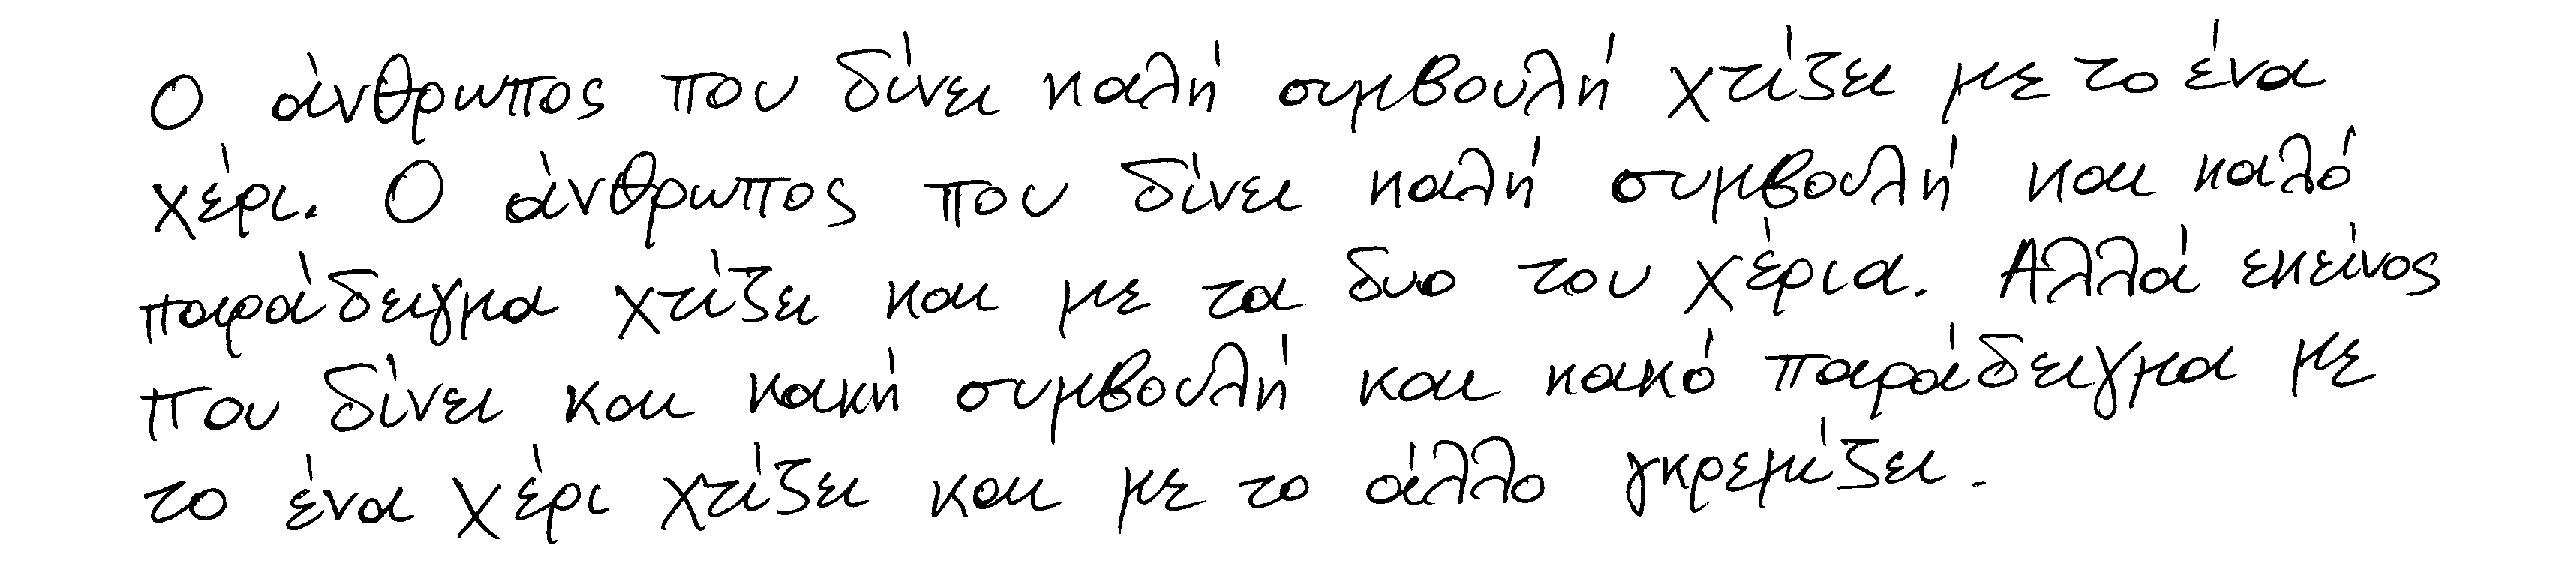 Ο άνθρωπος που δίνει καλή συμβουλή χτίζει με το ένα
χέρι. Ο άνθρωπος που δίνει καλή συμβουλή και καλό
παράδειγμα χτίζει και με τα δυο του χέρια. Αλλά εκείνος
που δίνει και κακή συμβουλή και κακό παράδειγμα με
το ένα χέρι χτίζει και με το άλλο γκρεμίζει.